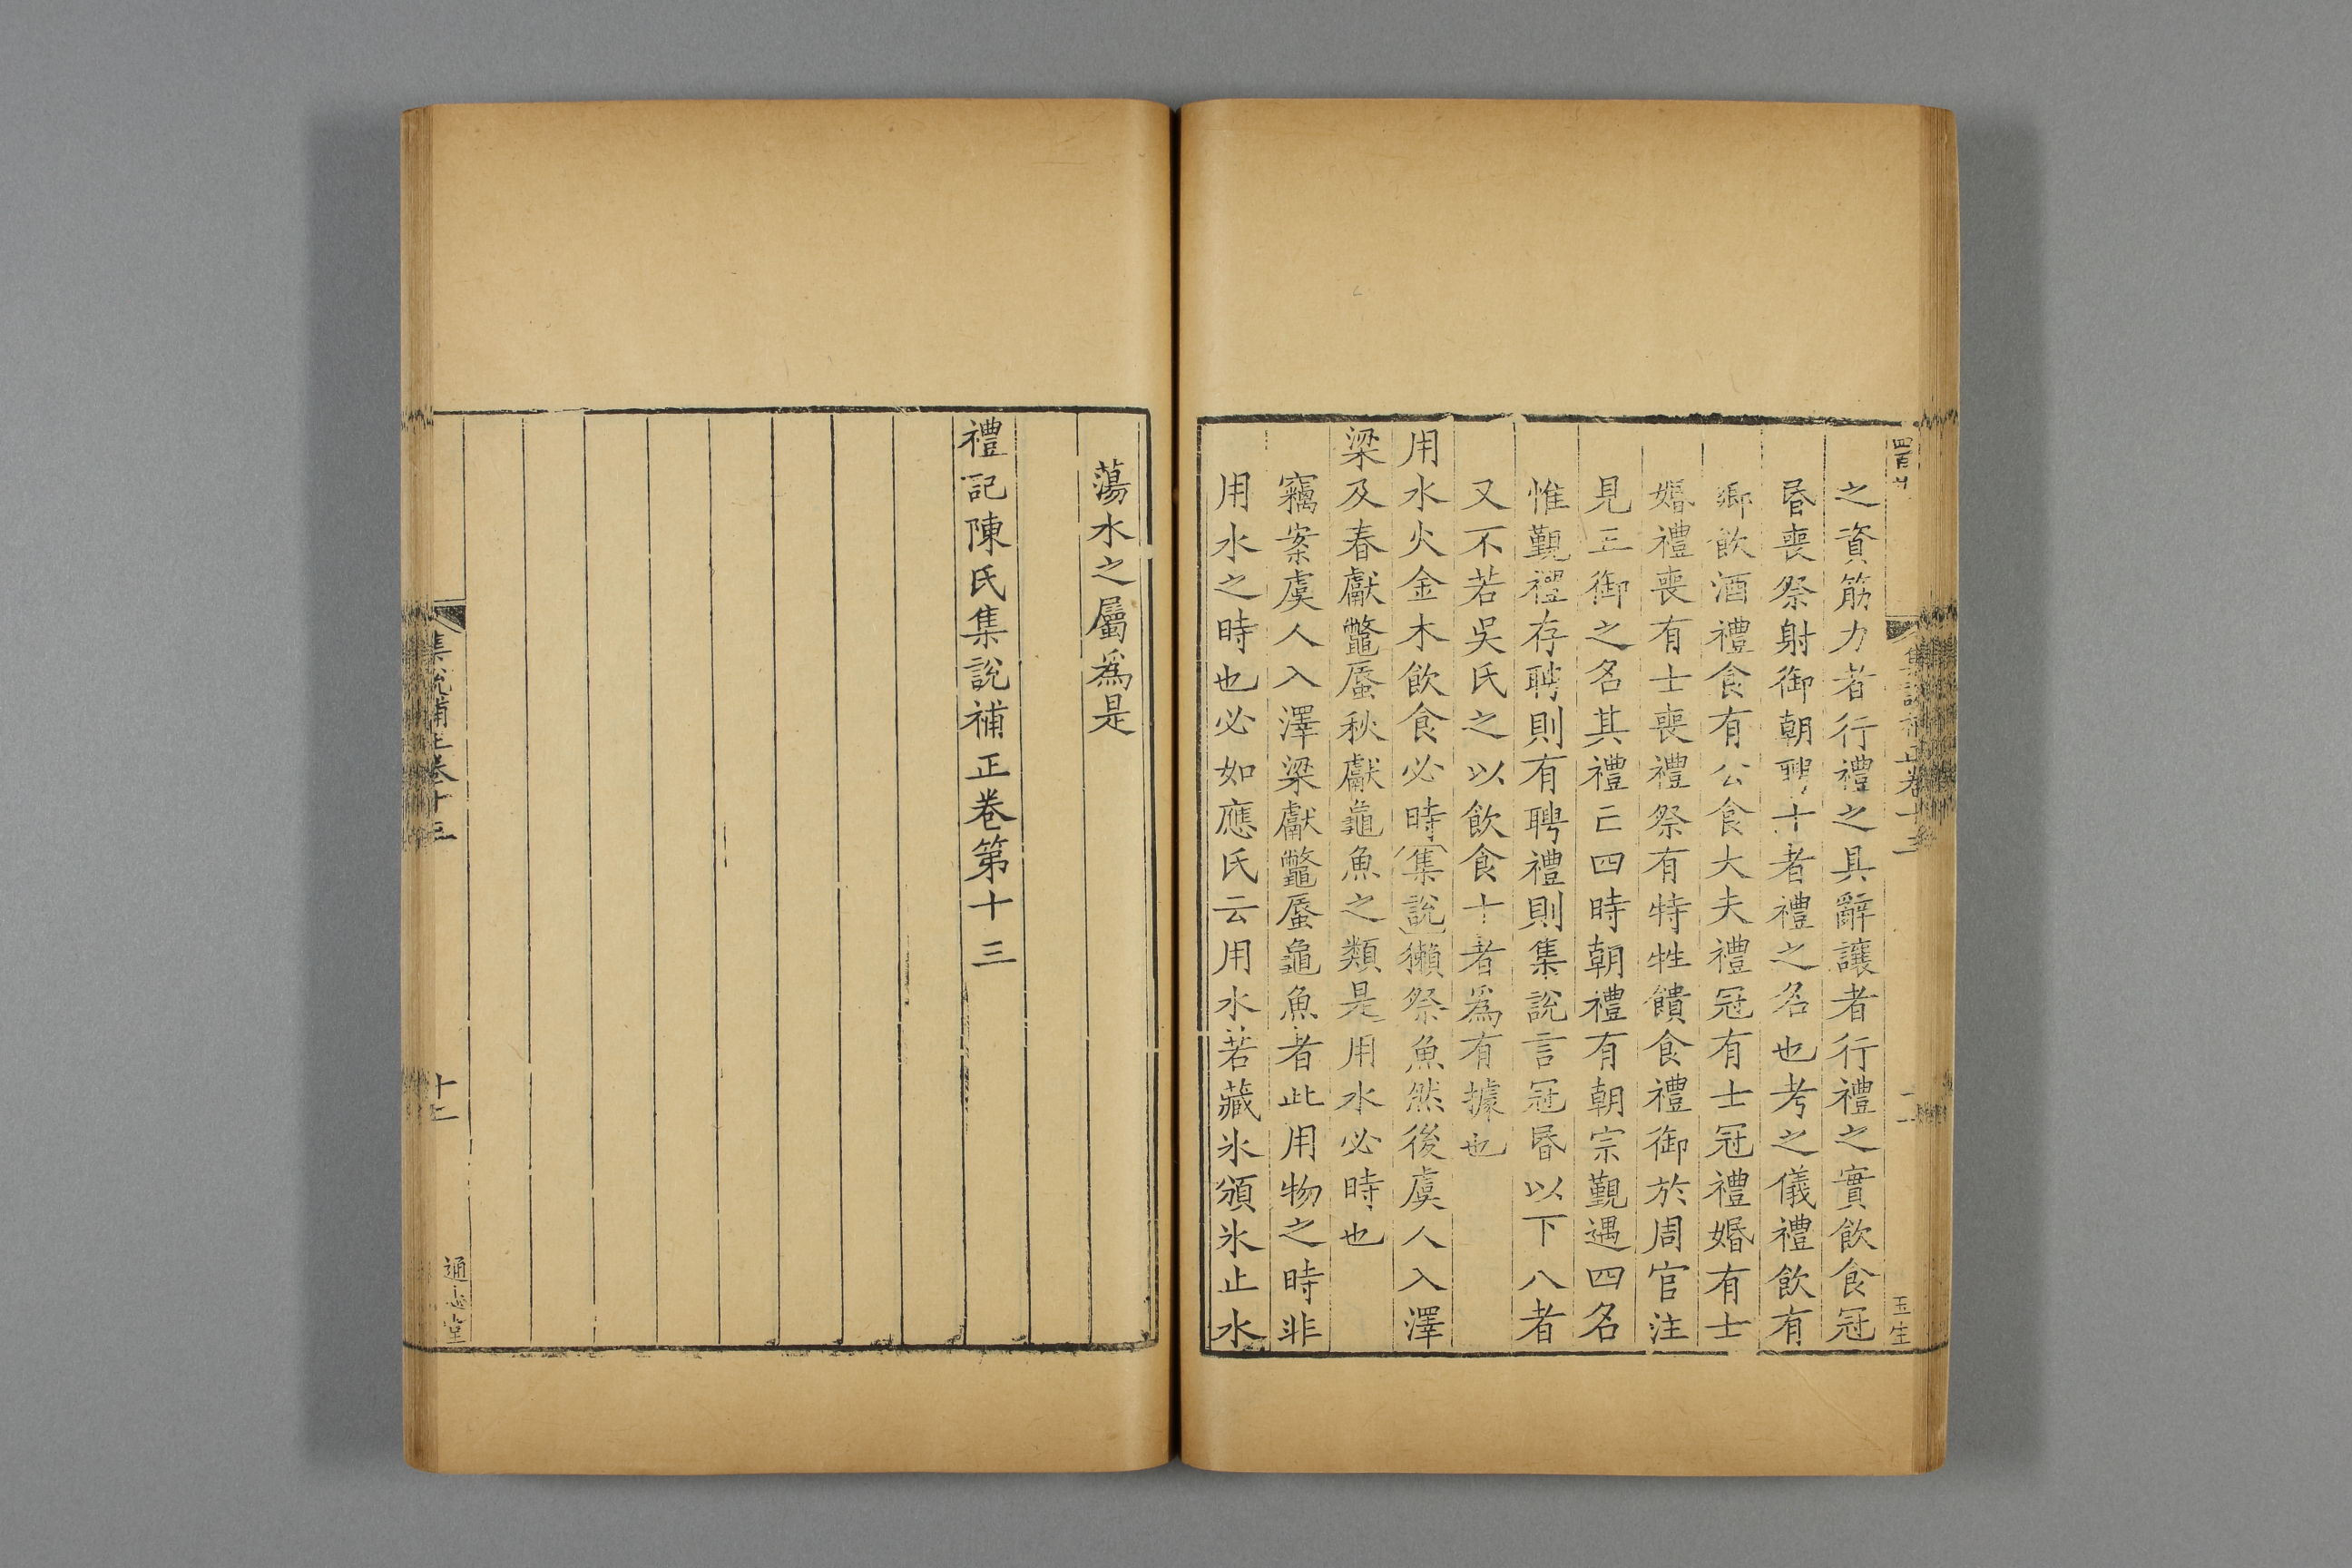 之資筋力者行禮之具辭讓者行禮之實飲食冠
昏喪祭射御朝聘十者禮之名也考之儀禮飲有
鄉飲酒禮食有公食大夫禮冠有士冠禮婚有士
婚禮喪有士喪禮祭有特牲饋食禮御於周官注
見三御之名其禮亡四時朝禮有朝宗覲遇四名
惟覲禮存聘則有聘禮則集說言冠昏以下八者
又不若吳氏之以飲食十者爲有據也
用水火金木飲食必時集說獺祭魚然後虞人入澤
梁及春獻鼈蜃秋獻龜魚之類是用水必時也
竊案虞人入澤梁獻鼈蜃龜魚者此用物之時非
用水之時也必如應氏云用水若藏氷頒氷止水
玉生
蕩水之屬爲是
禮記陳氏集說補正卷第十三
集說補正卷十三
通志堂